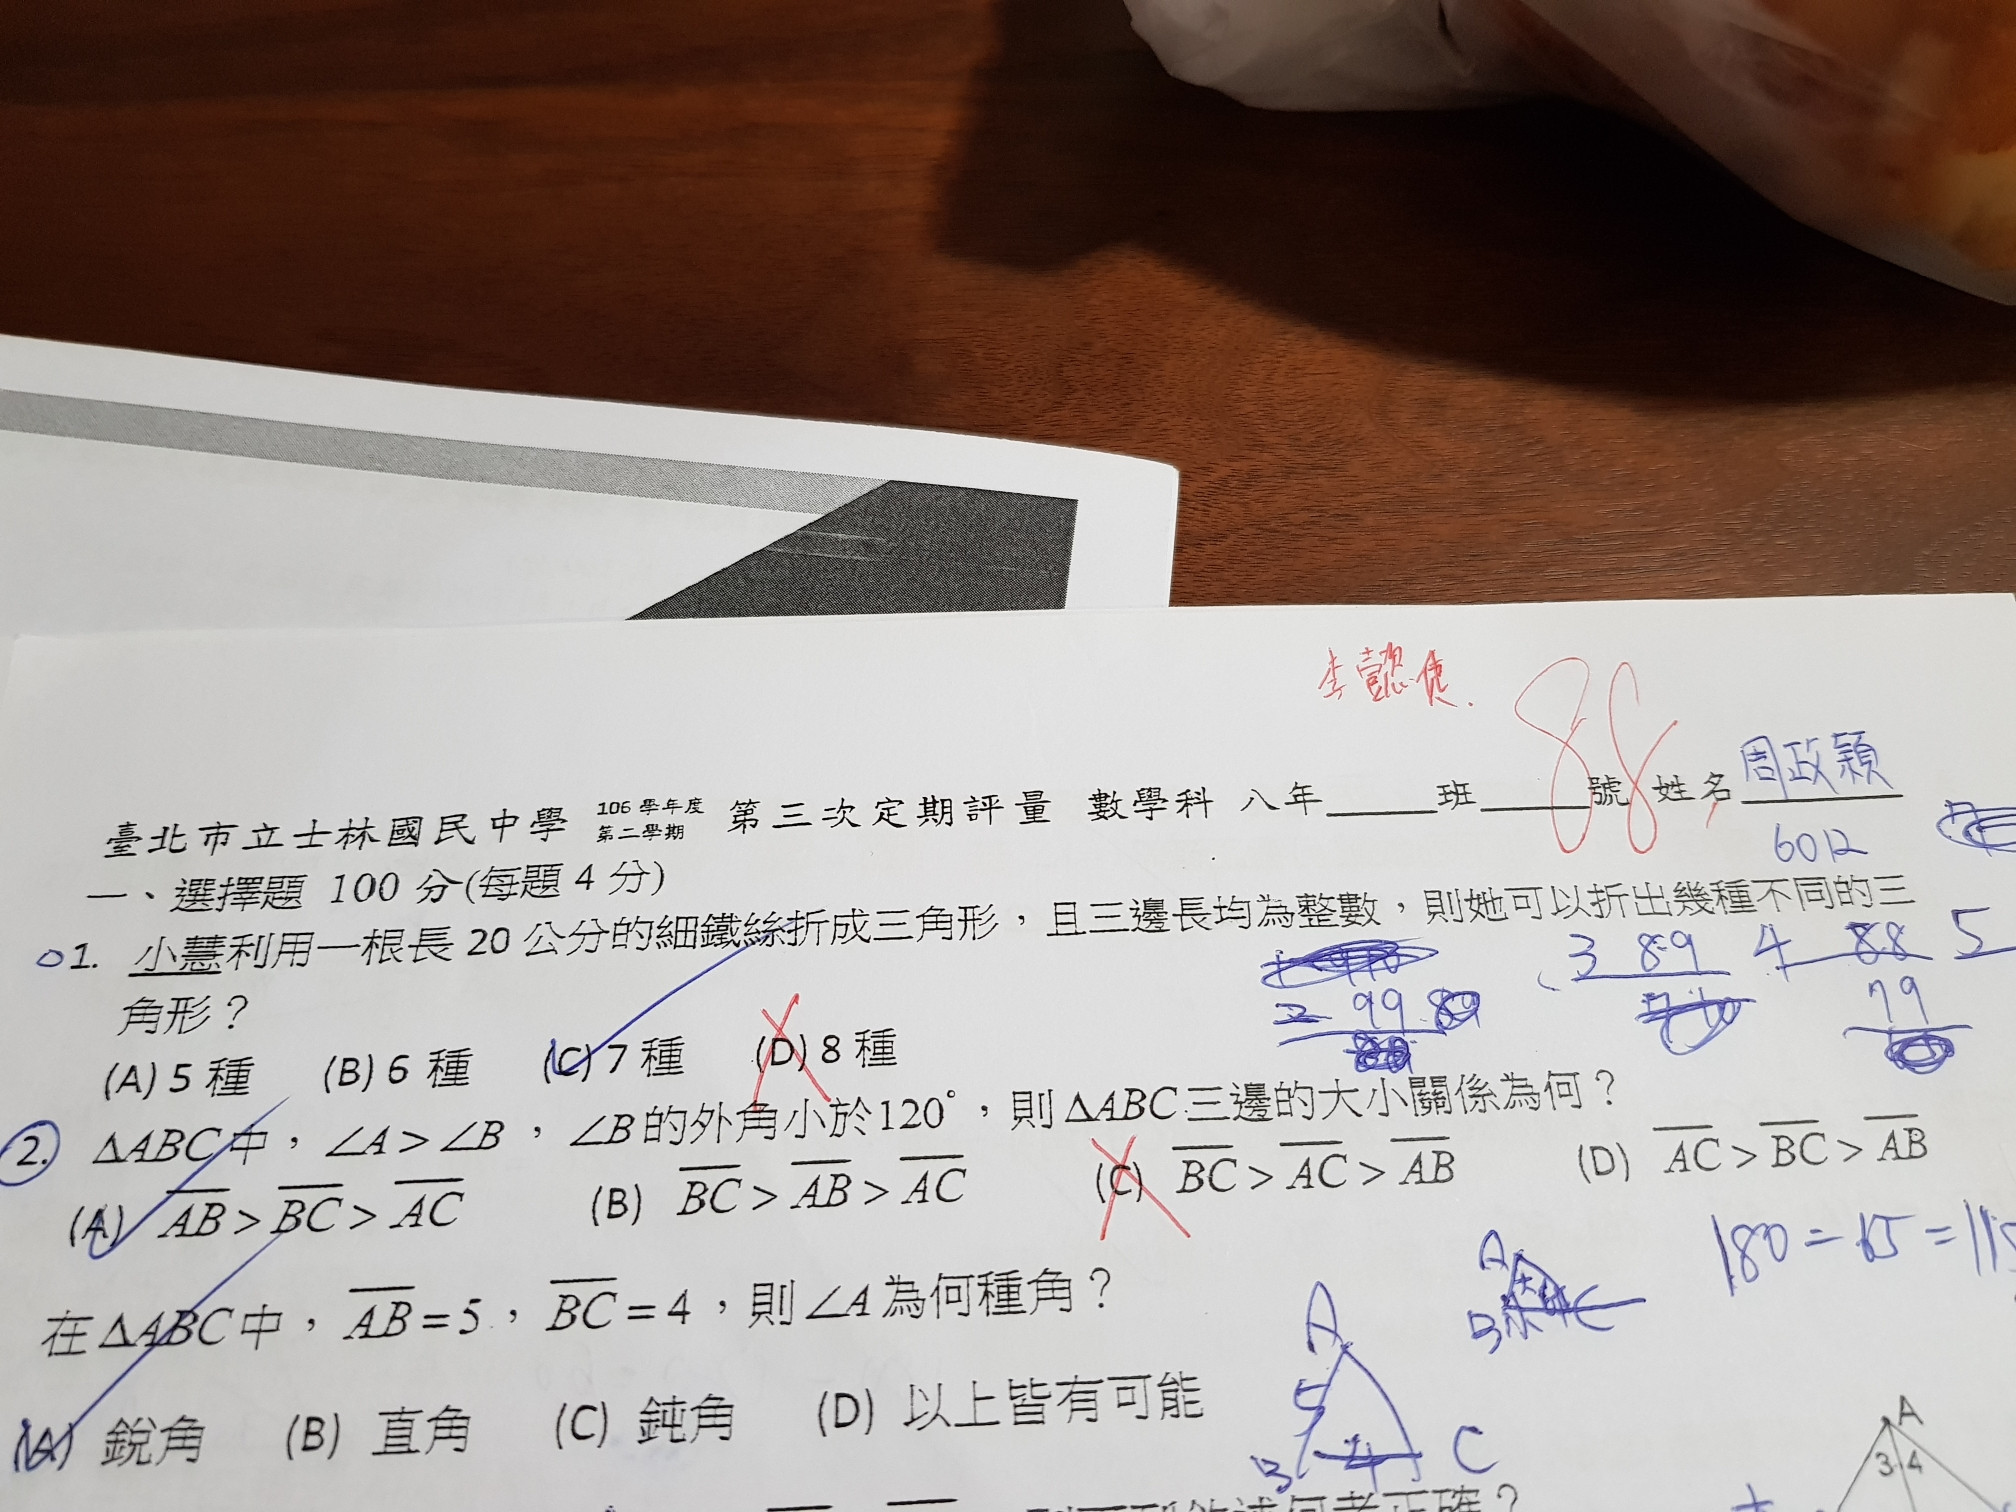 李懿倢.
88
臺北市立士林國民中學 106學年度第二學期 第三次定期評量 數學科 八年____班____號 姓名 周政穎
6012
一、選擇題 100 分(每題 4 分)
1. 小慧利用一根長 20 公分的細鐵絲折成三角形，且三邊長均為整數，則她可以折出幾種不同的三
角形？
3 89 4 88 5
2 99 79
(A) 5 種 (B) 6 種 (C) 7 種 (D) 8 種
2. ΔABC 中，∠A > ∠B，∠B 的外角小於120°，則 ΔABC 三邊的大小關係為何？
(A) \overline{AB} > \overline{BC} > \overline{AC} (B) \overline{BC} > \overline{AB} > \overline{AC} (C) \overline{BC} > \overline{AC} > \overline{AB} (D) \overline{AC} > \overline{BC} > \overline{AB}
在 ΔABC 中，\overline{AB} = 5，\overline{BC} = 4，則 ∠A 為何種角？
(A) 銳角 (B) 直角 (C) 鈍角 (D) 以上皆有可能
A
5
B 4 C
A
3 4